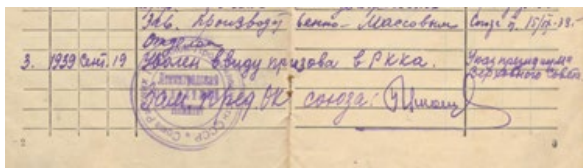 Зав. Производственно-Массовым Союз п. 15/IX-38.
отделом
3. 1939 Сент. 19 Уволен ввиду призова в РККА. Указ президиума Верховного Совет
Зам. Пред. ОК союза:
Ленинградский
СССР